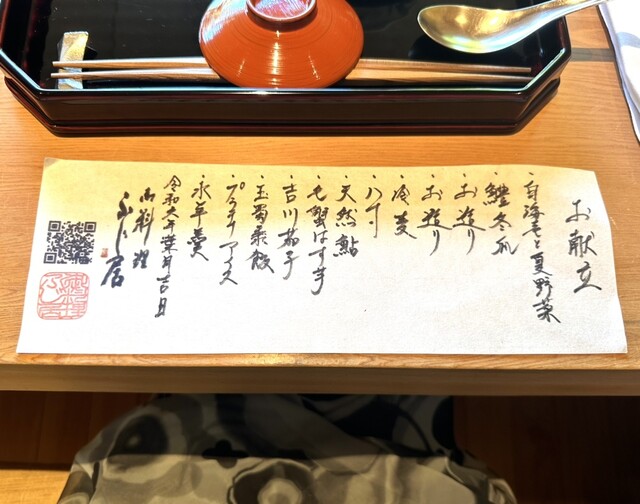 お献立
・白海老と夏野菜
・鱧冬瓜
・お造り
・お造り
・冷麦
・八寸
・天然鮎
・毛蟹はす芋
・吉川茄子
・玉蜀黍飯
・プラチナアイス
・水羊羹
令和六年葉月吉日
御料理
ふじ居